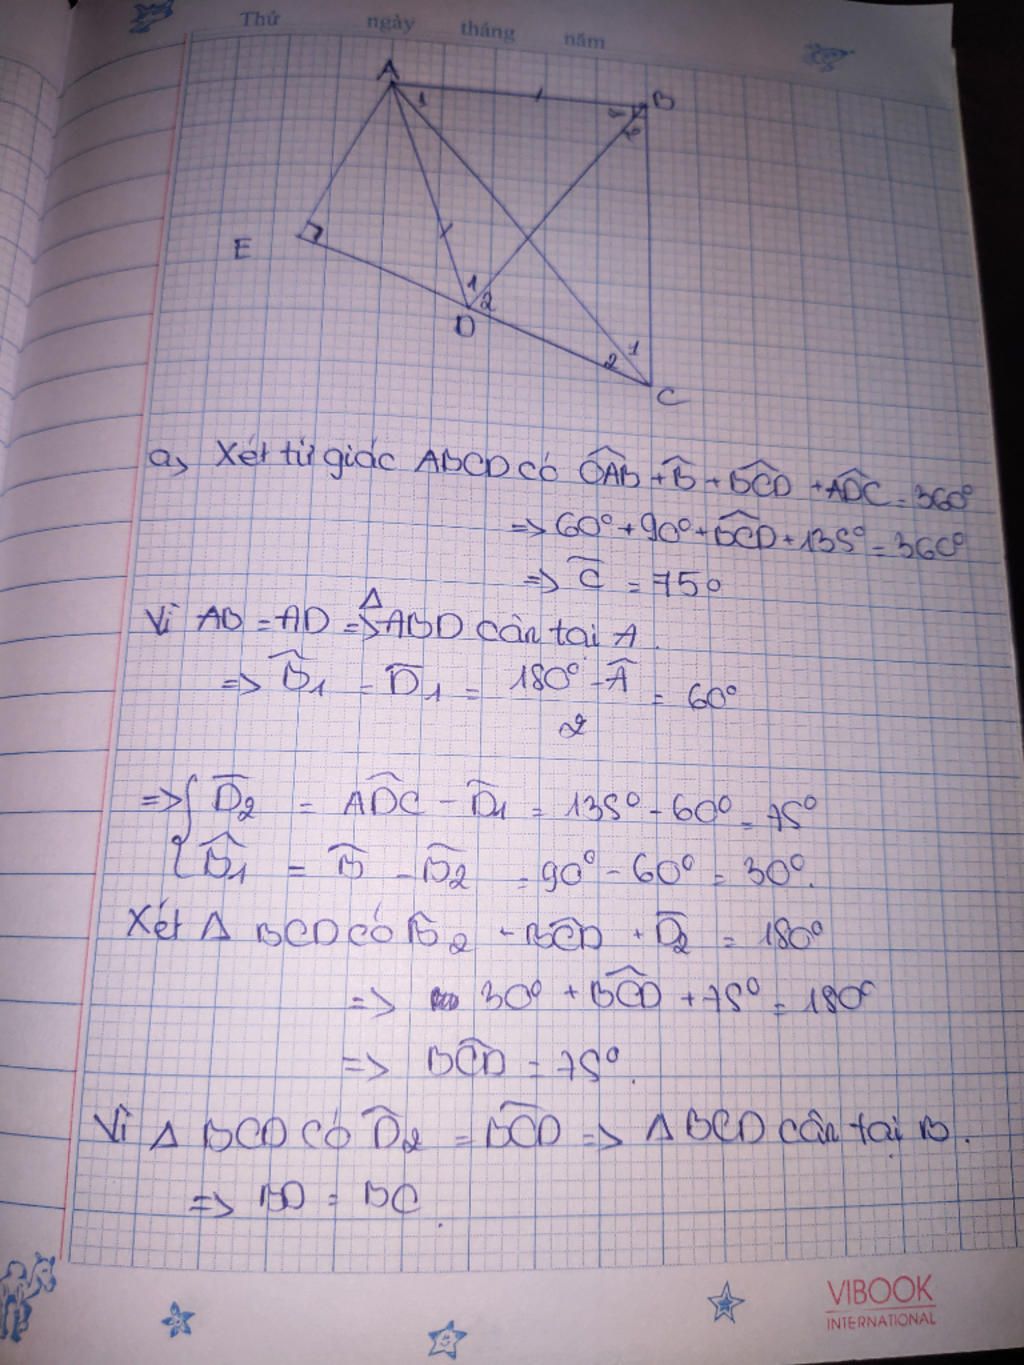 Thứ ngày tháng năm
A
1
B
1
2
E
1
2
D
2
1
C
a, Xét tứ giác ABCD có DAB + B + BCD + ADC = 360°
=> 60° + 90° + BCD + 135° = 360°
=> C = 75°
Vì AB = AD => Δ ABD cân tại A.
=> B1 = D1 = 180° - A / 2 = 60°
=> { D2 = ADC - D1 = 135° - 60° = 75°
{ B1 = B - B2 = 90° - 60° = 30°.
Xét Δ BCD có B2 + BCD + D2 = 180°
=> 30° + BCD + 75° = 180°
=> BCD = 75°.
Vì Δ BCD có D2 = BCD => Δ BCD cân tại B.
=> BD = BC.
VIBOOK
INTERNATIONAL